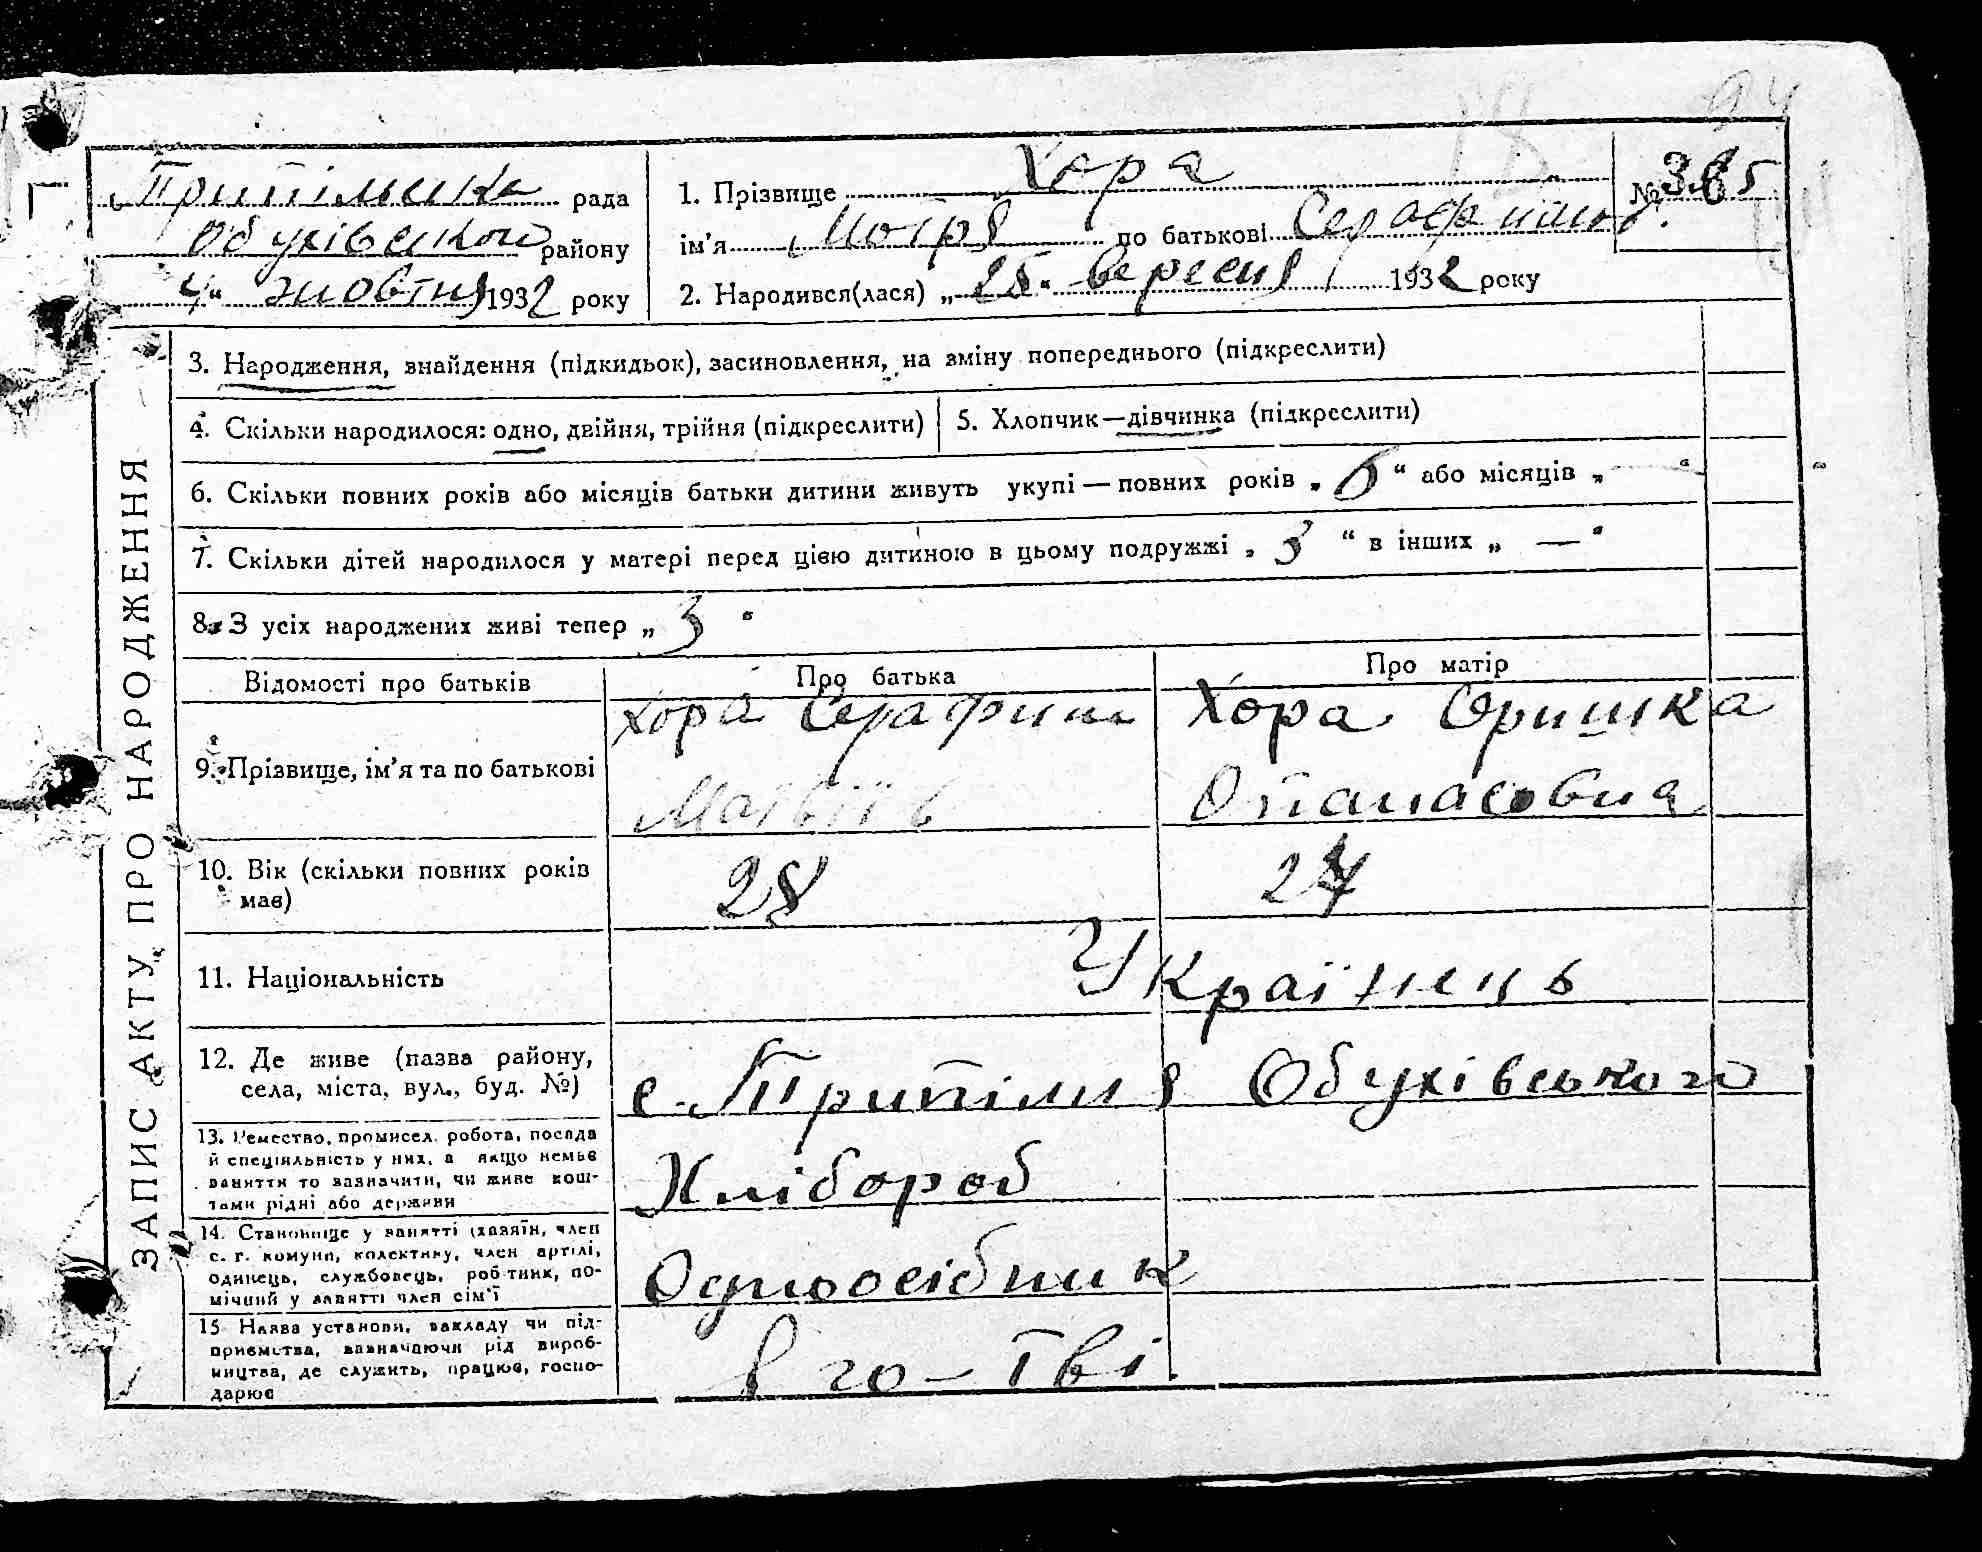 94
18
Трипільська рада
Обухівського району
"4" жовтня 1932 року
1. Прізвище Хора
ім'я Мотря по батькові Серафимов.
2. Народився(лася) „25" вересня 1932 року
№ 365
ЗАПИС АКТУ ПРО НАРОДЖЕННЯ
3. Народження, знайдення (підкидьок), засиновлення, на зміну попереднього (підкреслити)
4. Скільки народилося: одно, двійня, трійня (підкреслити)
5. Хлопчик—дівчинка (підкреслити)
6. Скільки повних років або місяців батьки дитини живуть укупі — повних років „6" або місяців „ "
7. Скільки дітей народилося у матері перед цією дитиною в цьому подружжі „3" в інших „ — "
8. З усіх народжених живі тепер „3"
Відомості про батьків
Про батька
Про матір
9. Прізвище, ім'я та по батькові
Хора Серафим
Матвіїв
Хора Оришка
Опанасовна
10. Вік (скільки повних років має)
28
27
11. Національність
Українець
12. Де живе (назва району,
села, міста, вул., буд. №)
с. Трипілля Обухівського
13. Ремество, промисел, робота, посада
й спеціяльність у них, а якщо немає
заняття то зазначити, чи живе кош-
тами рідні або держави
Хлібороб
14. Становище у занятті (хазяїн, член
с. г. комуни, колективу, член артілі,
одинець, службовець, робітник, по-
мічний у занятті член сім'ї
Одноосібник
15. Назва установи, закладу чи під-
приємства, зазначаючи рід вироб-
ництва, де служить, працює, госпо-
дарює
в го-тві